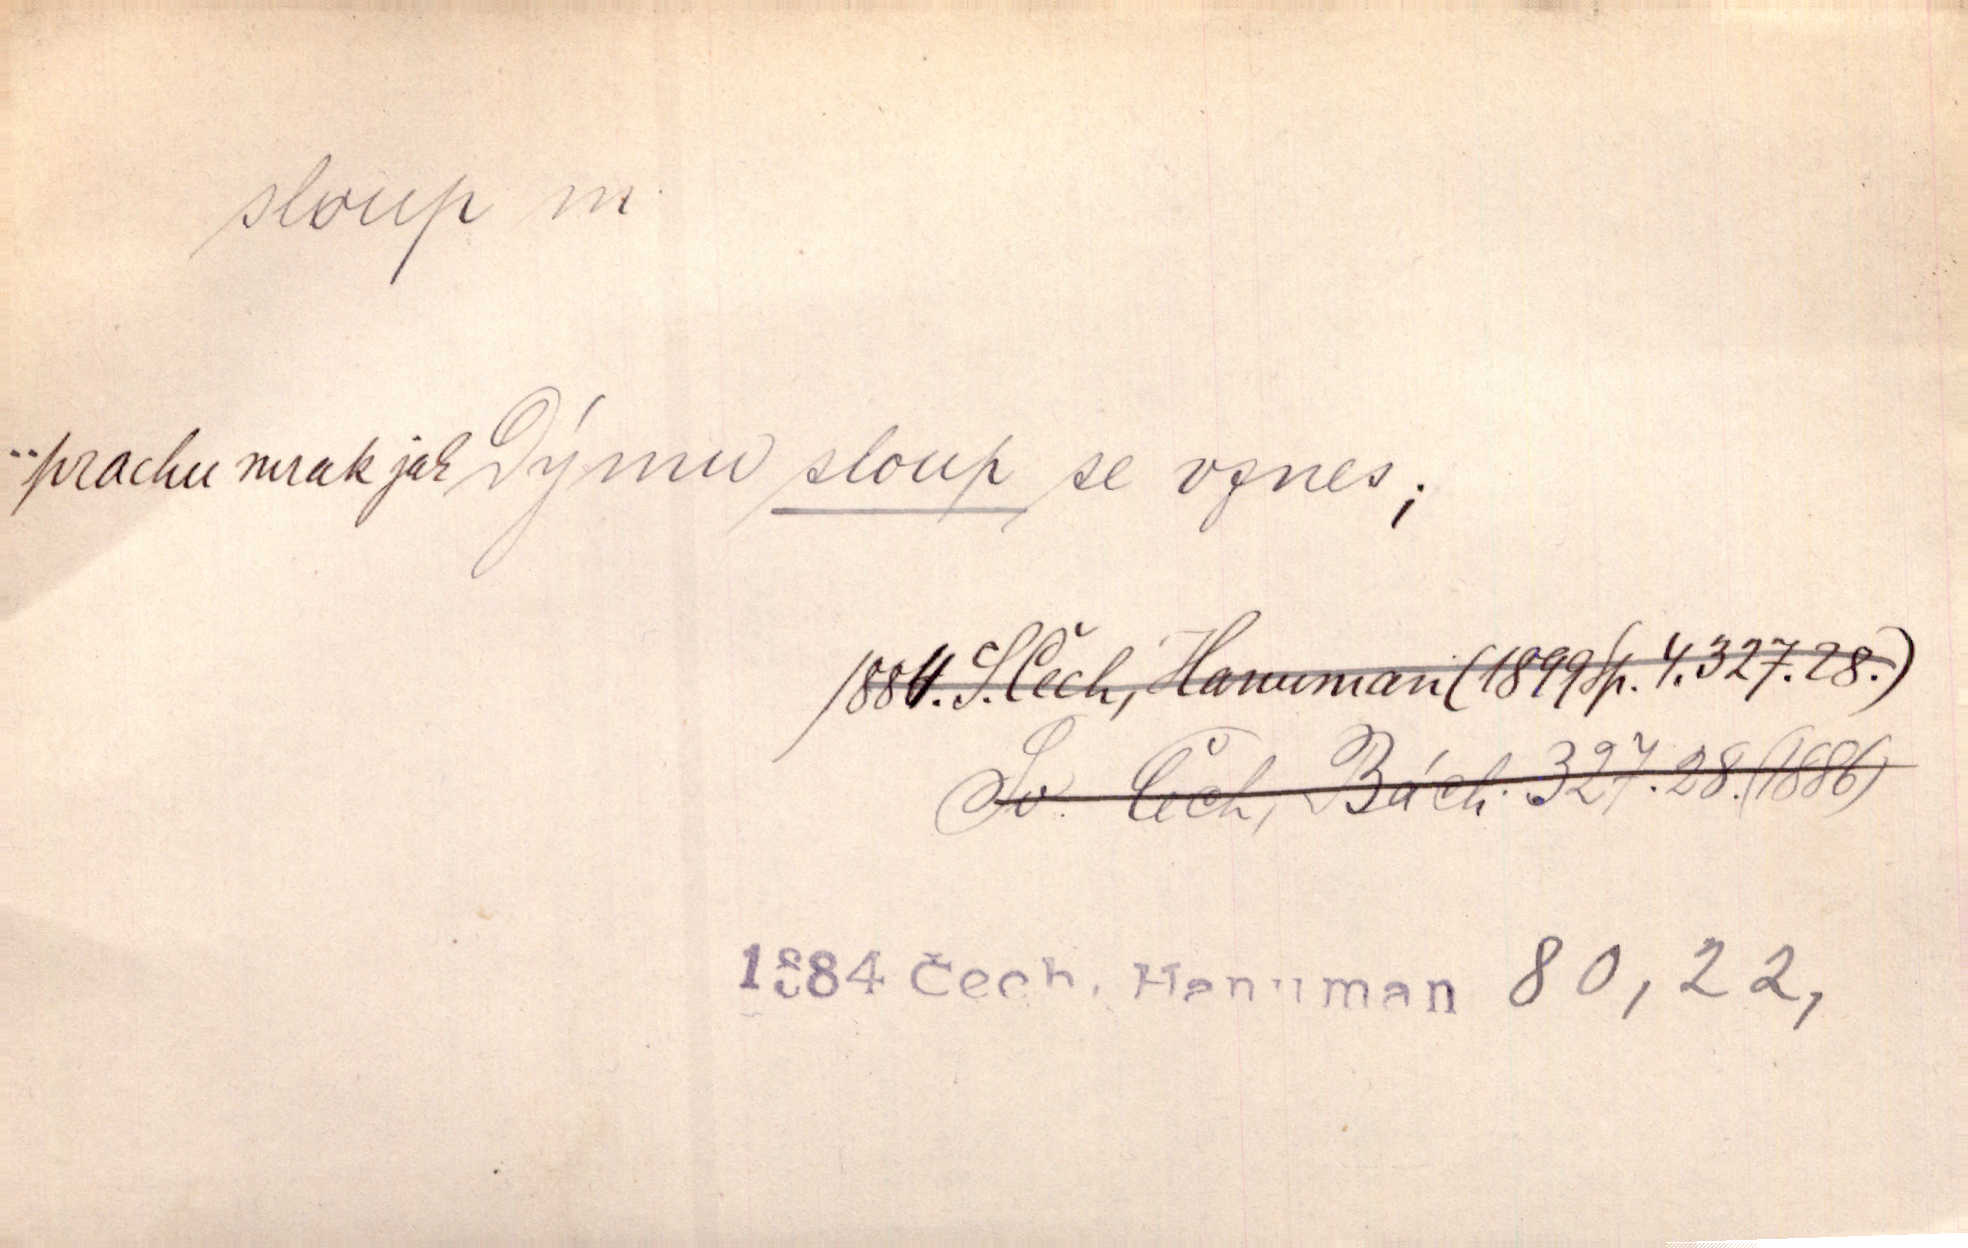 sloup m.
..prachu mrak jak Dýmu sloup se vznes;
1884. S. Čech, Hanuman (1899 Sp. 4. 327. 28.)
Sv. Čech, Bách. 327. 28. (1886)
1884 Čech, Hanuman 80, 22,